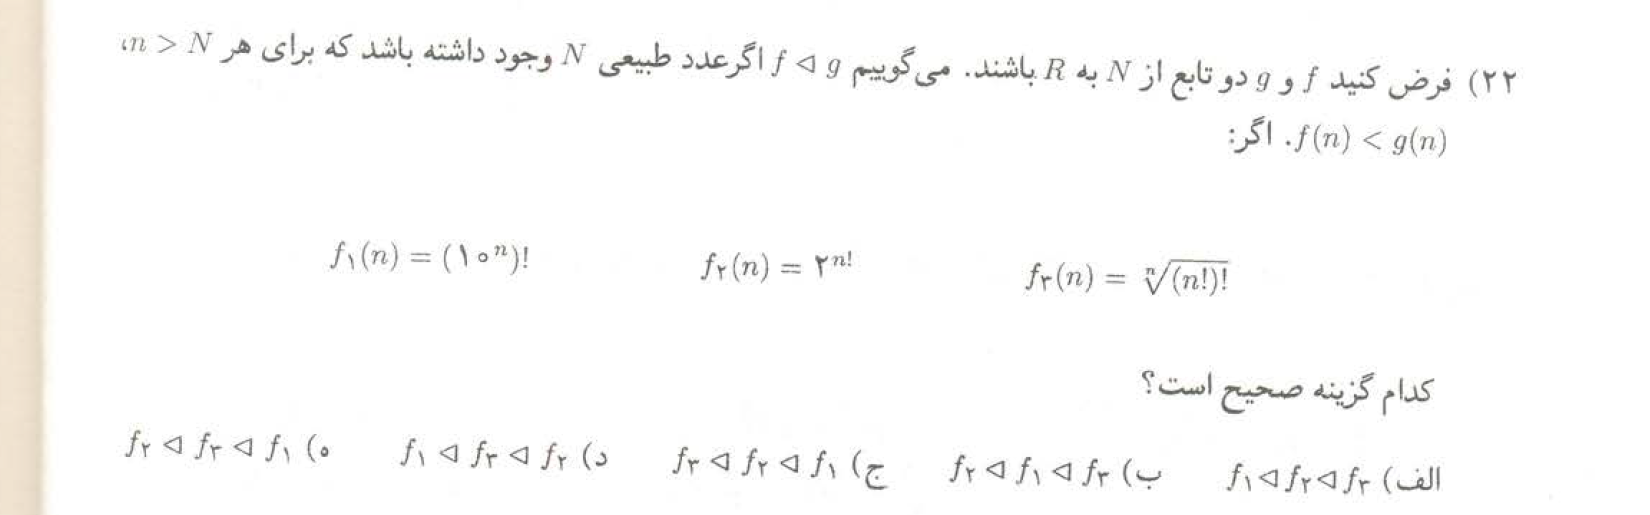 ۲۲) فرض کنید f و g دو تابع از N به R باشند. می‌گوییم f ⊲ g اگر عدد طبیعی N وجود داشته باشد که برای هر n > N،
f(n) < g(n). اگر:
f۱(n) = (۱۰ⁿ)! f۲(n) = ۲ⁿ! f۳(n) = ⁿ√(n!)!
کدام گزینه صحیح است؟
الف) f۱ ⊲ f۲ ⊲ f۳ ب) f۲ ⊲ f۱ ⊲ f۳ ج) f۳ ⊲ f۲ ⊲ f۱ د) f۱ ⊲ f۳ ⊲ f۲ ه) f۲ ⊲ f۳ ⊲ f۱